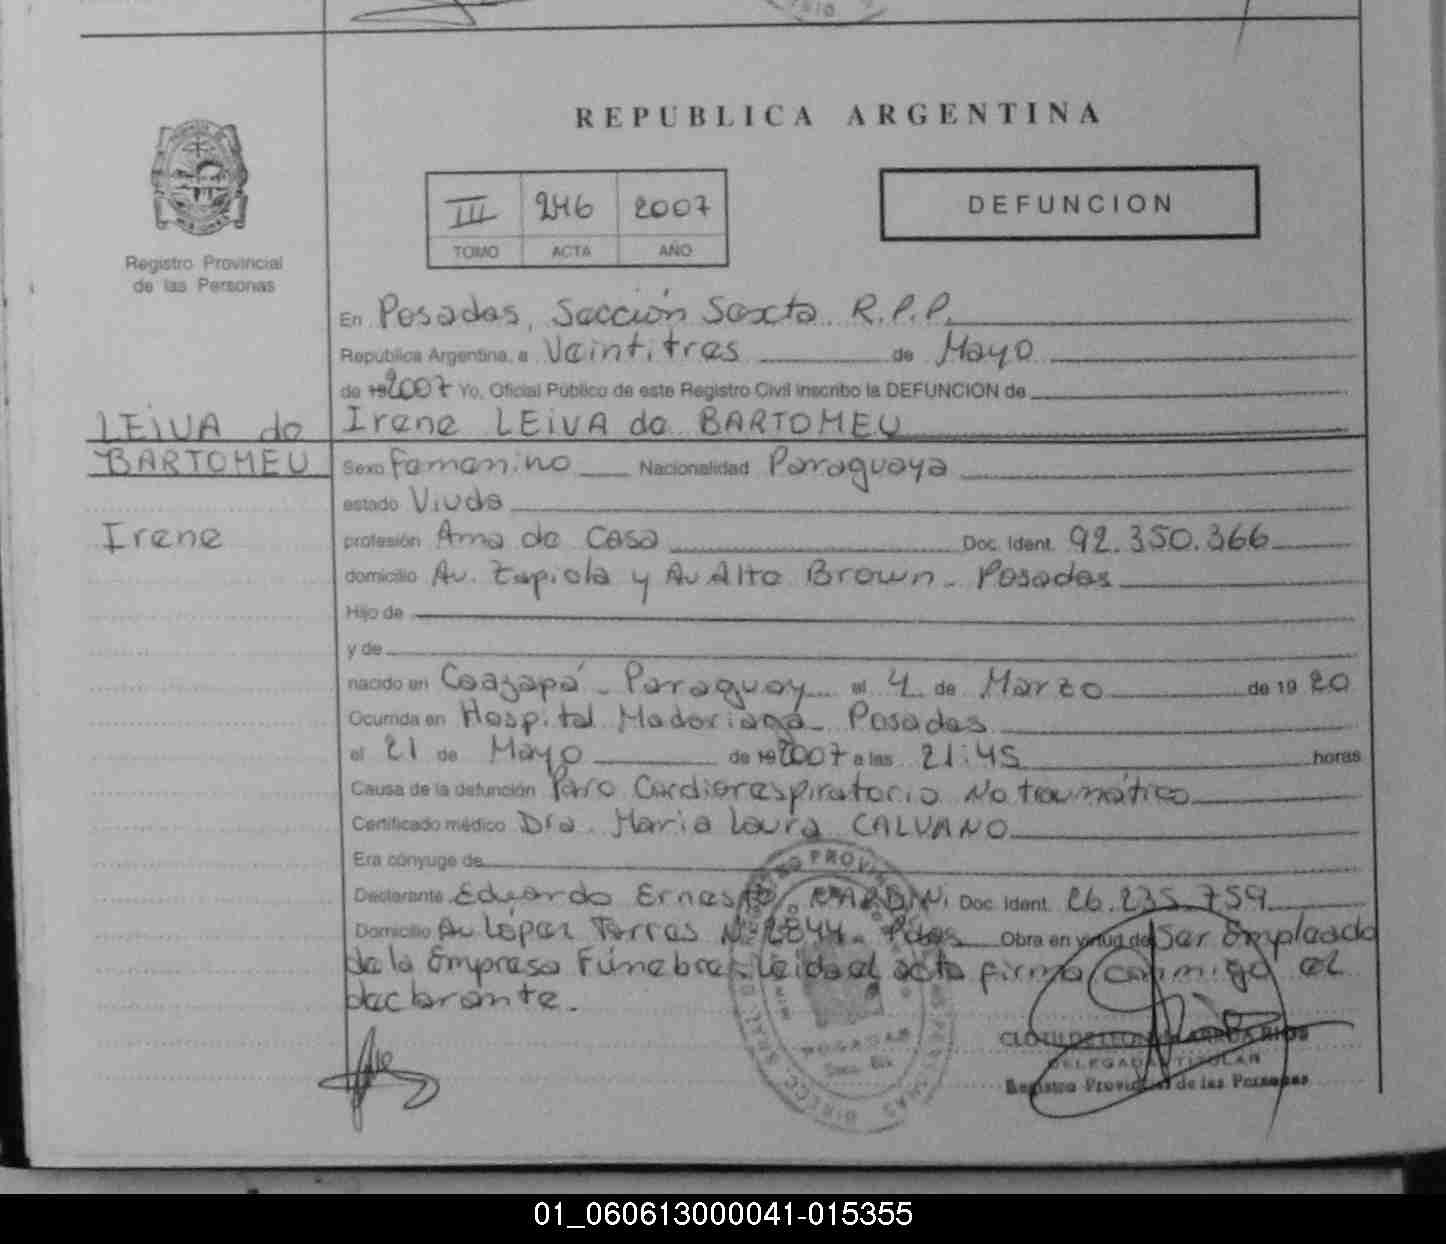 REPUBLICA ARGENTINA
III 246 2007
TOMO ACTA AÑO
DEFUNCION
Registro Provincial
de las Personas
En Posadas, Sección Sexta R.P.P.
Republica Argentina, a Veintitres de Mayo
de 19 2007 Yo, Oficial Público de este Registro Civil inscribo la DEFUNCION de
Irene LEIVA de BARTOMEU
LEIVA de
BARTOMEU
Irene
Sexo Femenino Nacionalidad Paraguaya
estado Viuda
profesión Ama de Casa Doc. Ident. 92.350.366
domicilio Av. Zapiola y Av Alte Brown - Posadas
Hijo de
y de
nacido en Caazapá - Paraguay el 4 de Marzo de 19 20
Ocurrida en Hospital Madariaga - Posadas
el 21 de Mayo de 19 2007 a las 21:45 horas
Causa de la defunción Paro Cardiorespiratorio No traumático
Certificado médico Dra. Maria Laura CALVANO
Era cónyuge de
Declarante Eduardo Ernesto Doc. Ident. 26.235.759
Domicilio Av López Torres Nº 2844 - Pdas Obra en virtud de Ser Empleado
de la Empresa Fúnebre. Leida el acta firma conmigo el
declarante.
RIOS
DELEGADA TITULAR
Registro Provincial de las Personas
POSADAS
01_060613000041-015355